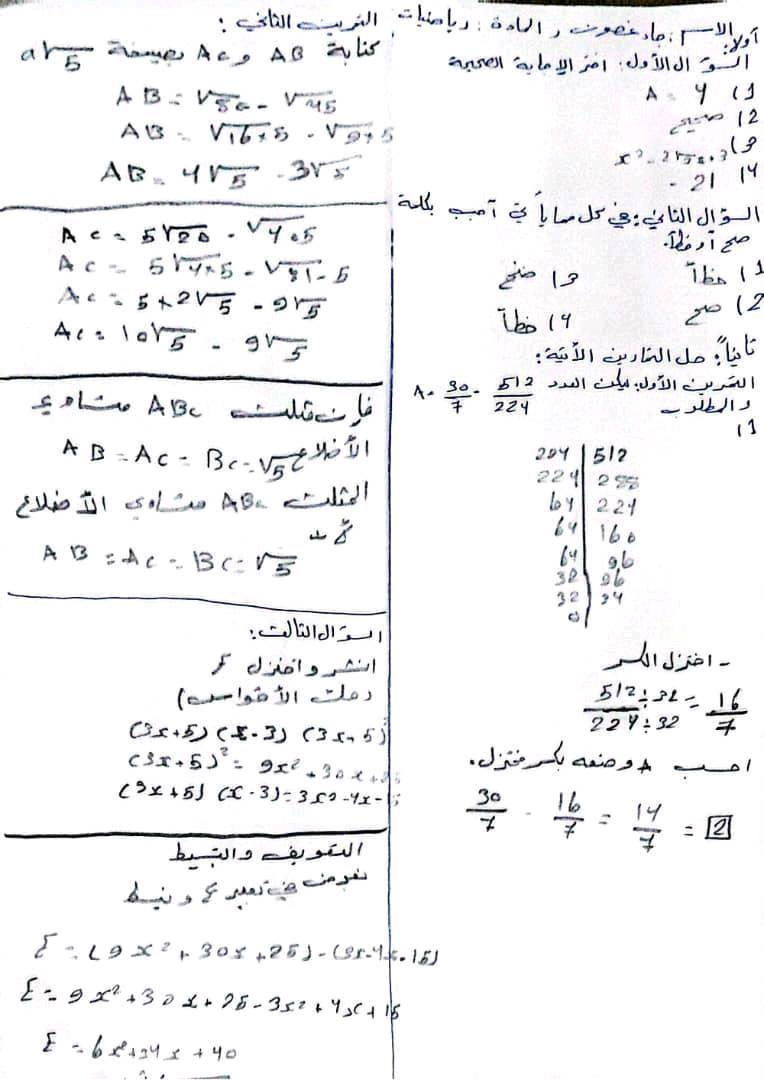 أولاً: الاسم: جاد غصون المادة: رياضيات
السؤال الأول: اختر الإجابة الصحيحة
A = 4 (1
صحيح (2
(3
- 21 (4
السؤال الثاني: في كل مما يأتي أجب بكلمة
صح أو خطأ.
1) خطأ 3) صح
2) صح 4) خطأ
ثانياً: حل التمارين الأتية:
التمرين الأول: ليكن العدد A = 30/7 - 512/224
والمطلوب
(1
224 | 512
224 | 288
64 | 224
64 | 160
64 | 96
32 | 96
32 | 34
0
- اختزل الكسر
512÷32 / 224÷32 = 16/7
احسب A وضعه بكسر مختزل.
30/7 - 16/7 = 14/7 = 2
التمرين الثاني:
كتابة AB و Ac بصيغة a√5
AB = √80 - √45
AB = √16×5 - √9×5
AB = 4√5 - 3√5
Ac = 5√20 - √405
Ac = 5√4×5 - √81-5
Ac = 5×2√5 - 9√5
Ac = 10√5 - 9√5
فإن مثلث ABc متساوي
الأضلاع AB = Ac = Bc = √5
المثلث ABc متساوي الأضلاع
AB = Ac = Bc = √5
السؤال الثالث:
انشر واختزل
(3x+5) (x-3) (3x+5)
(3x+5)² = 9x² + 30x + 25
(3x+5) (x-3) = 3x² - 4x - 15
التعويض والتبسيط
نعوض في تعبير E ونبسط
E = (9x² + 30x + 25) - (3x-4x-15)
E = 9x² + 30x + 25 - 3x² + 4x + 15
E = 6x² + 34x + 40